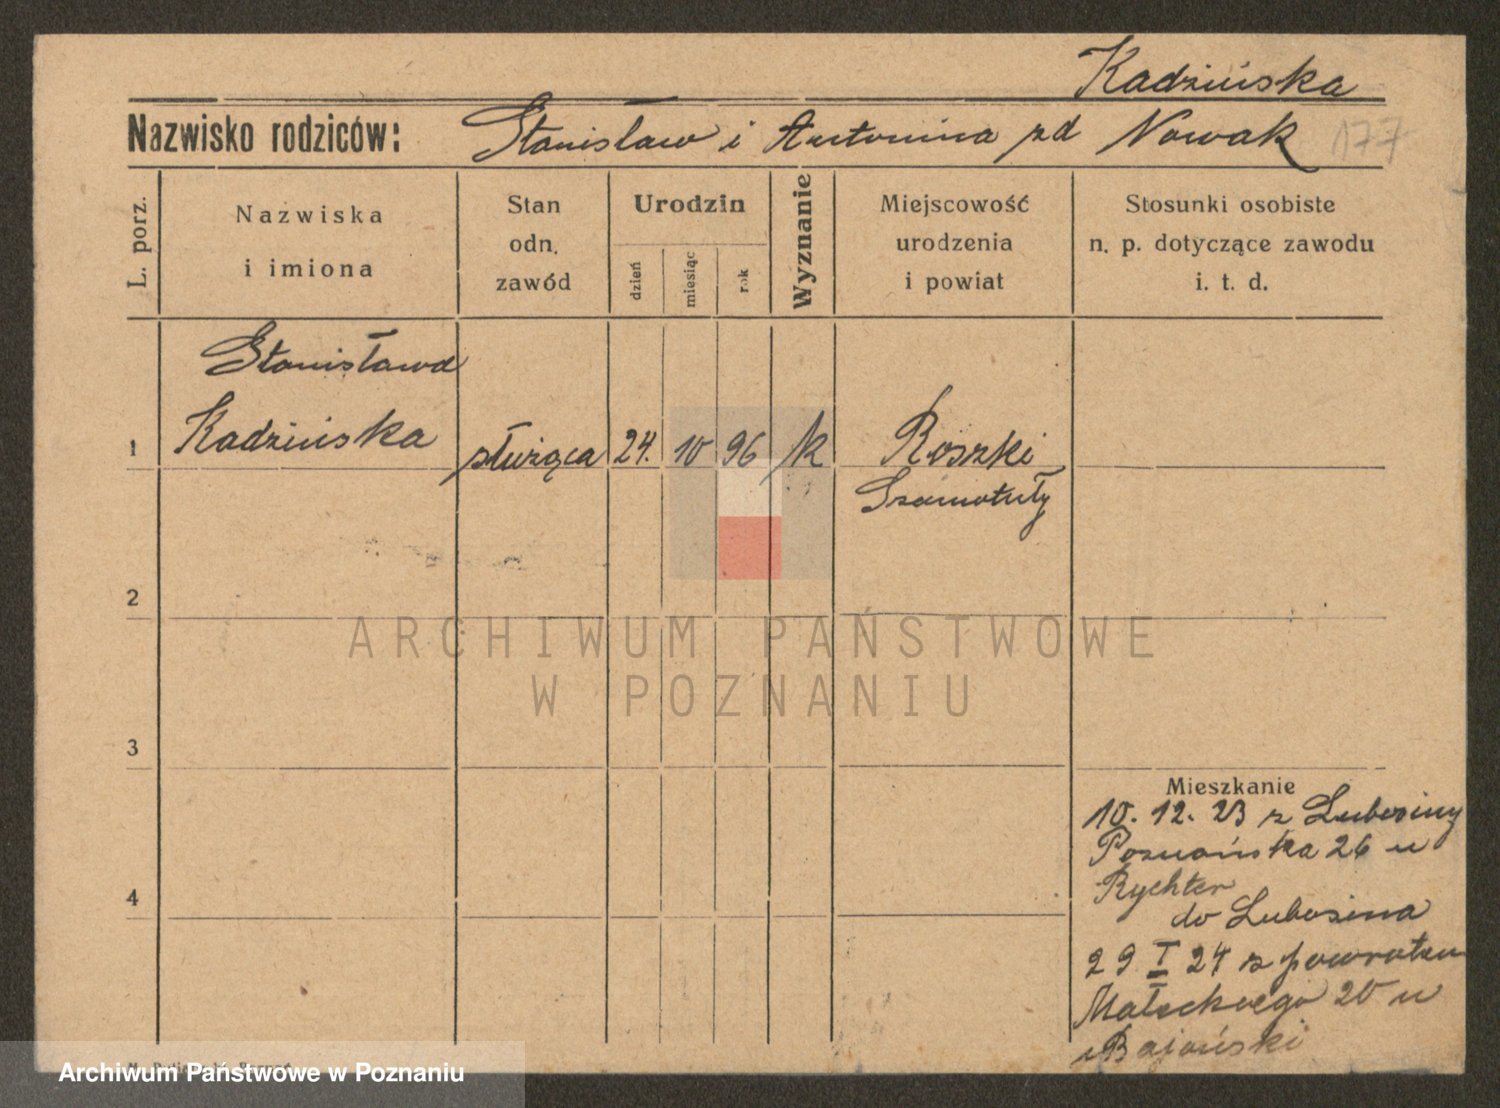 Kadzińska
Nazwisko rodziców: Stanisław i Antonina zd Nowak 177
L. porz.
Nazwiska
i imiona
Stan
odn.
zawód
Urodzin
dzień
miesiąc
rok
Wyznanie
Miejscowość
urodzenia
i powiat
Stosunki osobiste
n. p. dotyczące zawodu
i. t. d.
Stanisława
1 Kadzińska służąca 24. 10 96 k Roszki
Szamotuły
2
ARCHIWUM PAŃSTWOWE
W POZNANIU
3
Mieszkanie
10. 12. 23 z Lubosiny
Poznańska 26 u
Rychter
4
do Lubosina
29 I 24 z powrotem
Małeckiego 20 u
Bajoński
Archiwum Państwowe w Poznaniu